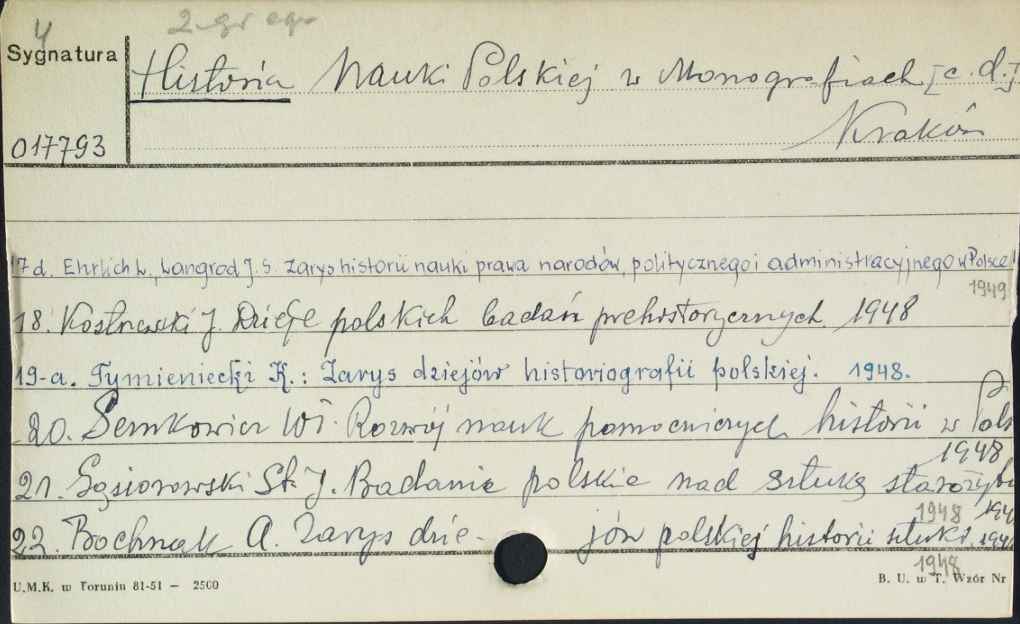 4 2-gi egz
Sygnatura
Historia Nauki Polskiej w Monografiach [c.d.]
Kraków
017793
17d. Ehrlich L., Langrod J. S. Zarys historii nauki prawa narodów, politycznego i administracyjnego w Polsce
1949
18. Kostrzewski J. Dzieje polskich badań prehistorycznych. 1948
19-a. Tymieniecki K.: Zarys dziejów historiografii polskiej. 1948.
20. Semkowicz Wł. Rozwój nauk pomocniczych historii w Pols
1948
21. Gąsiorowski St. J. Badania polskie nad sztuką staroży
1948 194
22. Bochnak A. Zarys dzie- jów polskiej historii sztuki. 194
1948
U.M.K. w Toruniu 81-51 — 2500 B. U. w T. Wzór Nr